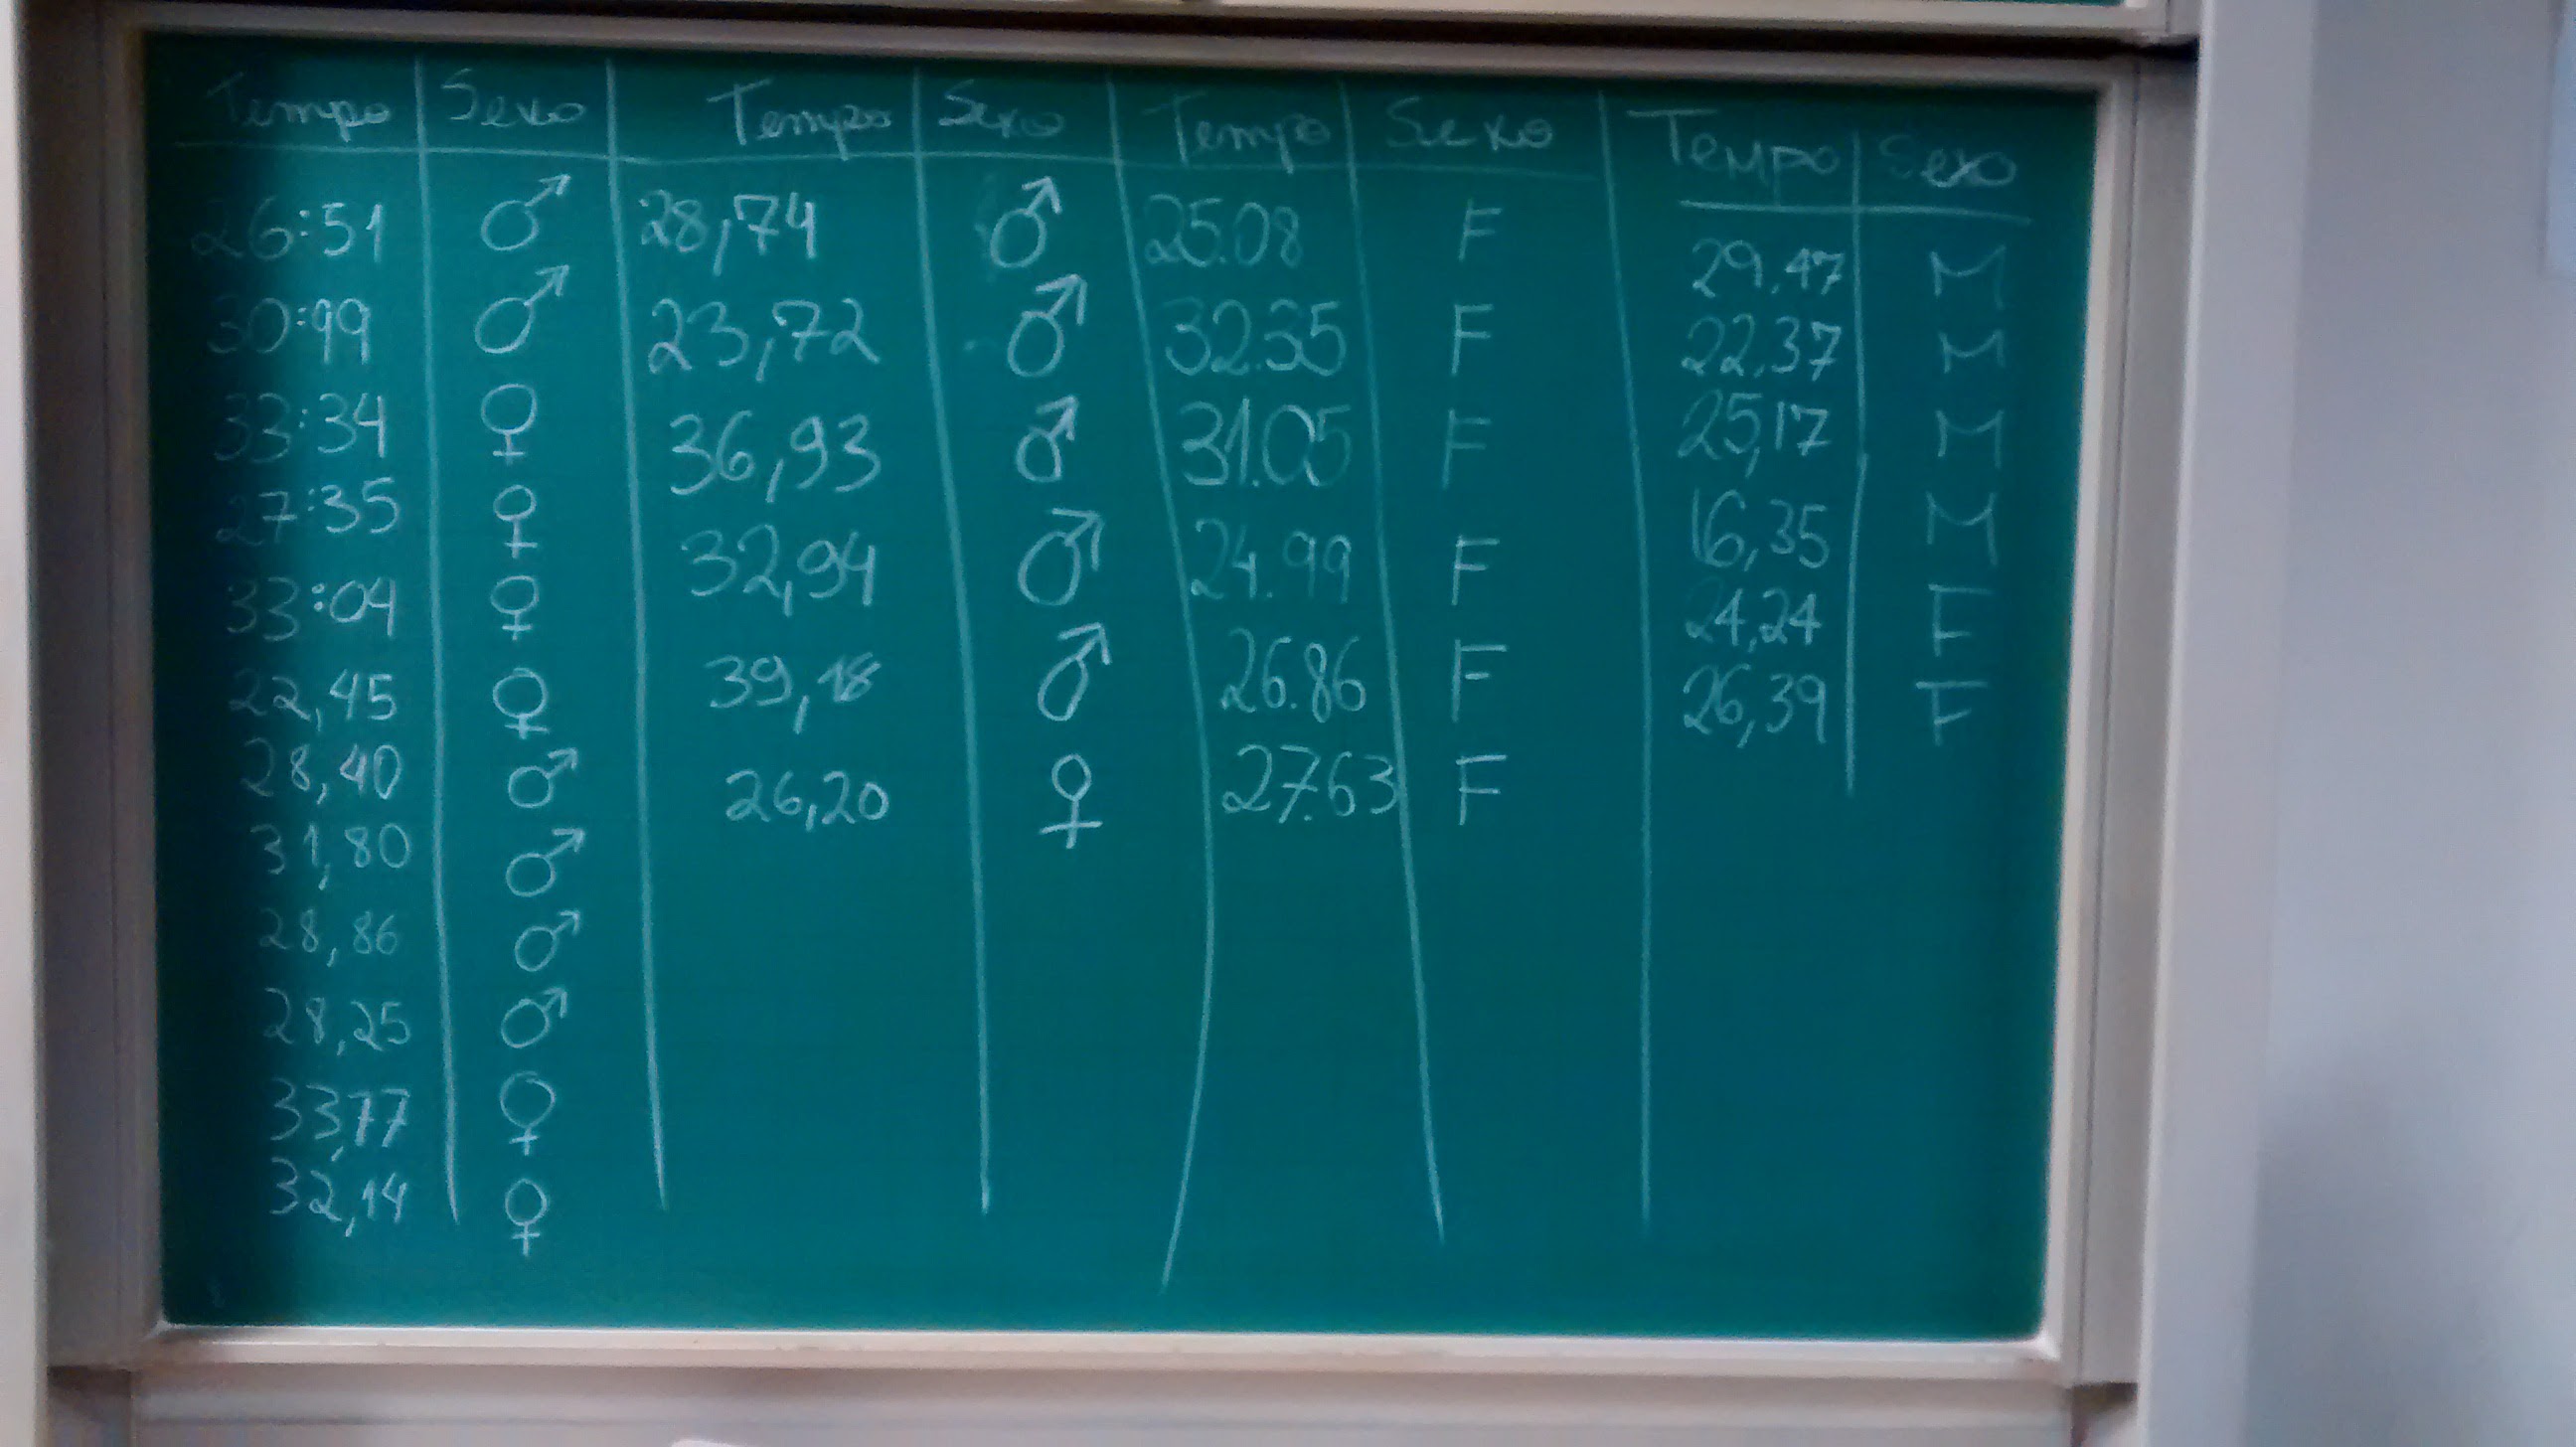 Tempo Sexo Tempo Sexo Tempo Sexo Tempo Sexo
26:51 ♂ 28,74 ♂ 25.08 F 29,47 M
30:99 ♂ 23,72 ♂ 32.35 F 22,37 M
33:34 ♀ 36,93 ♂ 31.05 F 25,17 M
27:35 ♀ 32,94 ♂ 24.99 F 16,35 M
33:04 ♀ 39,18 ♂ 26.86 F 24,24 F
22,45 ♀ 26,20 ♀ 27.63 F 26,39 F
28,40 ♂
31,80 ♂
28,86 ♂
28,25 ♂
33,77 ♀
32,14 ♀